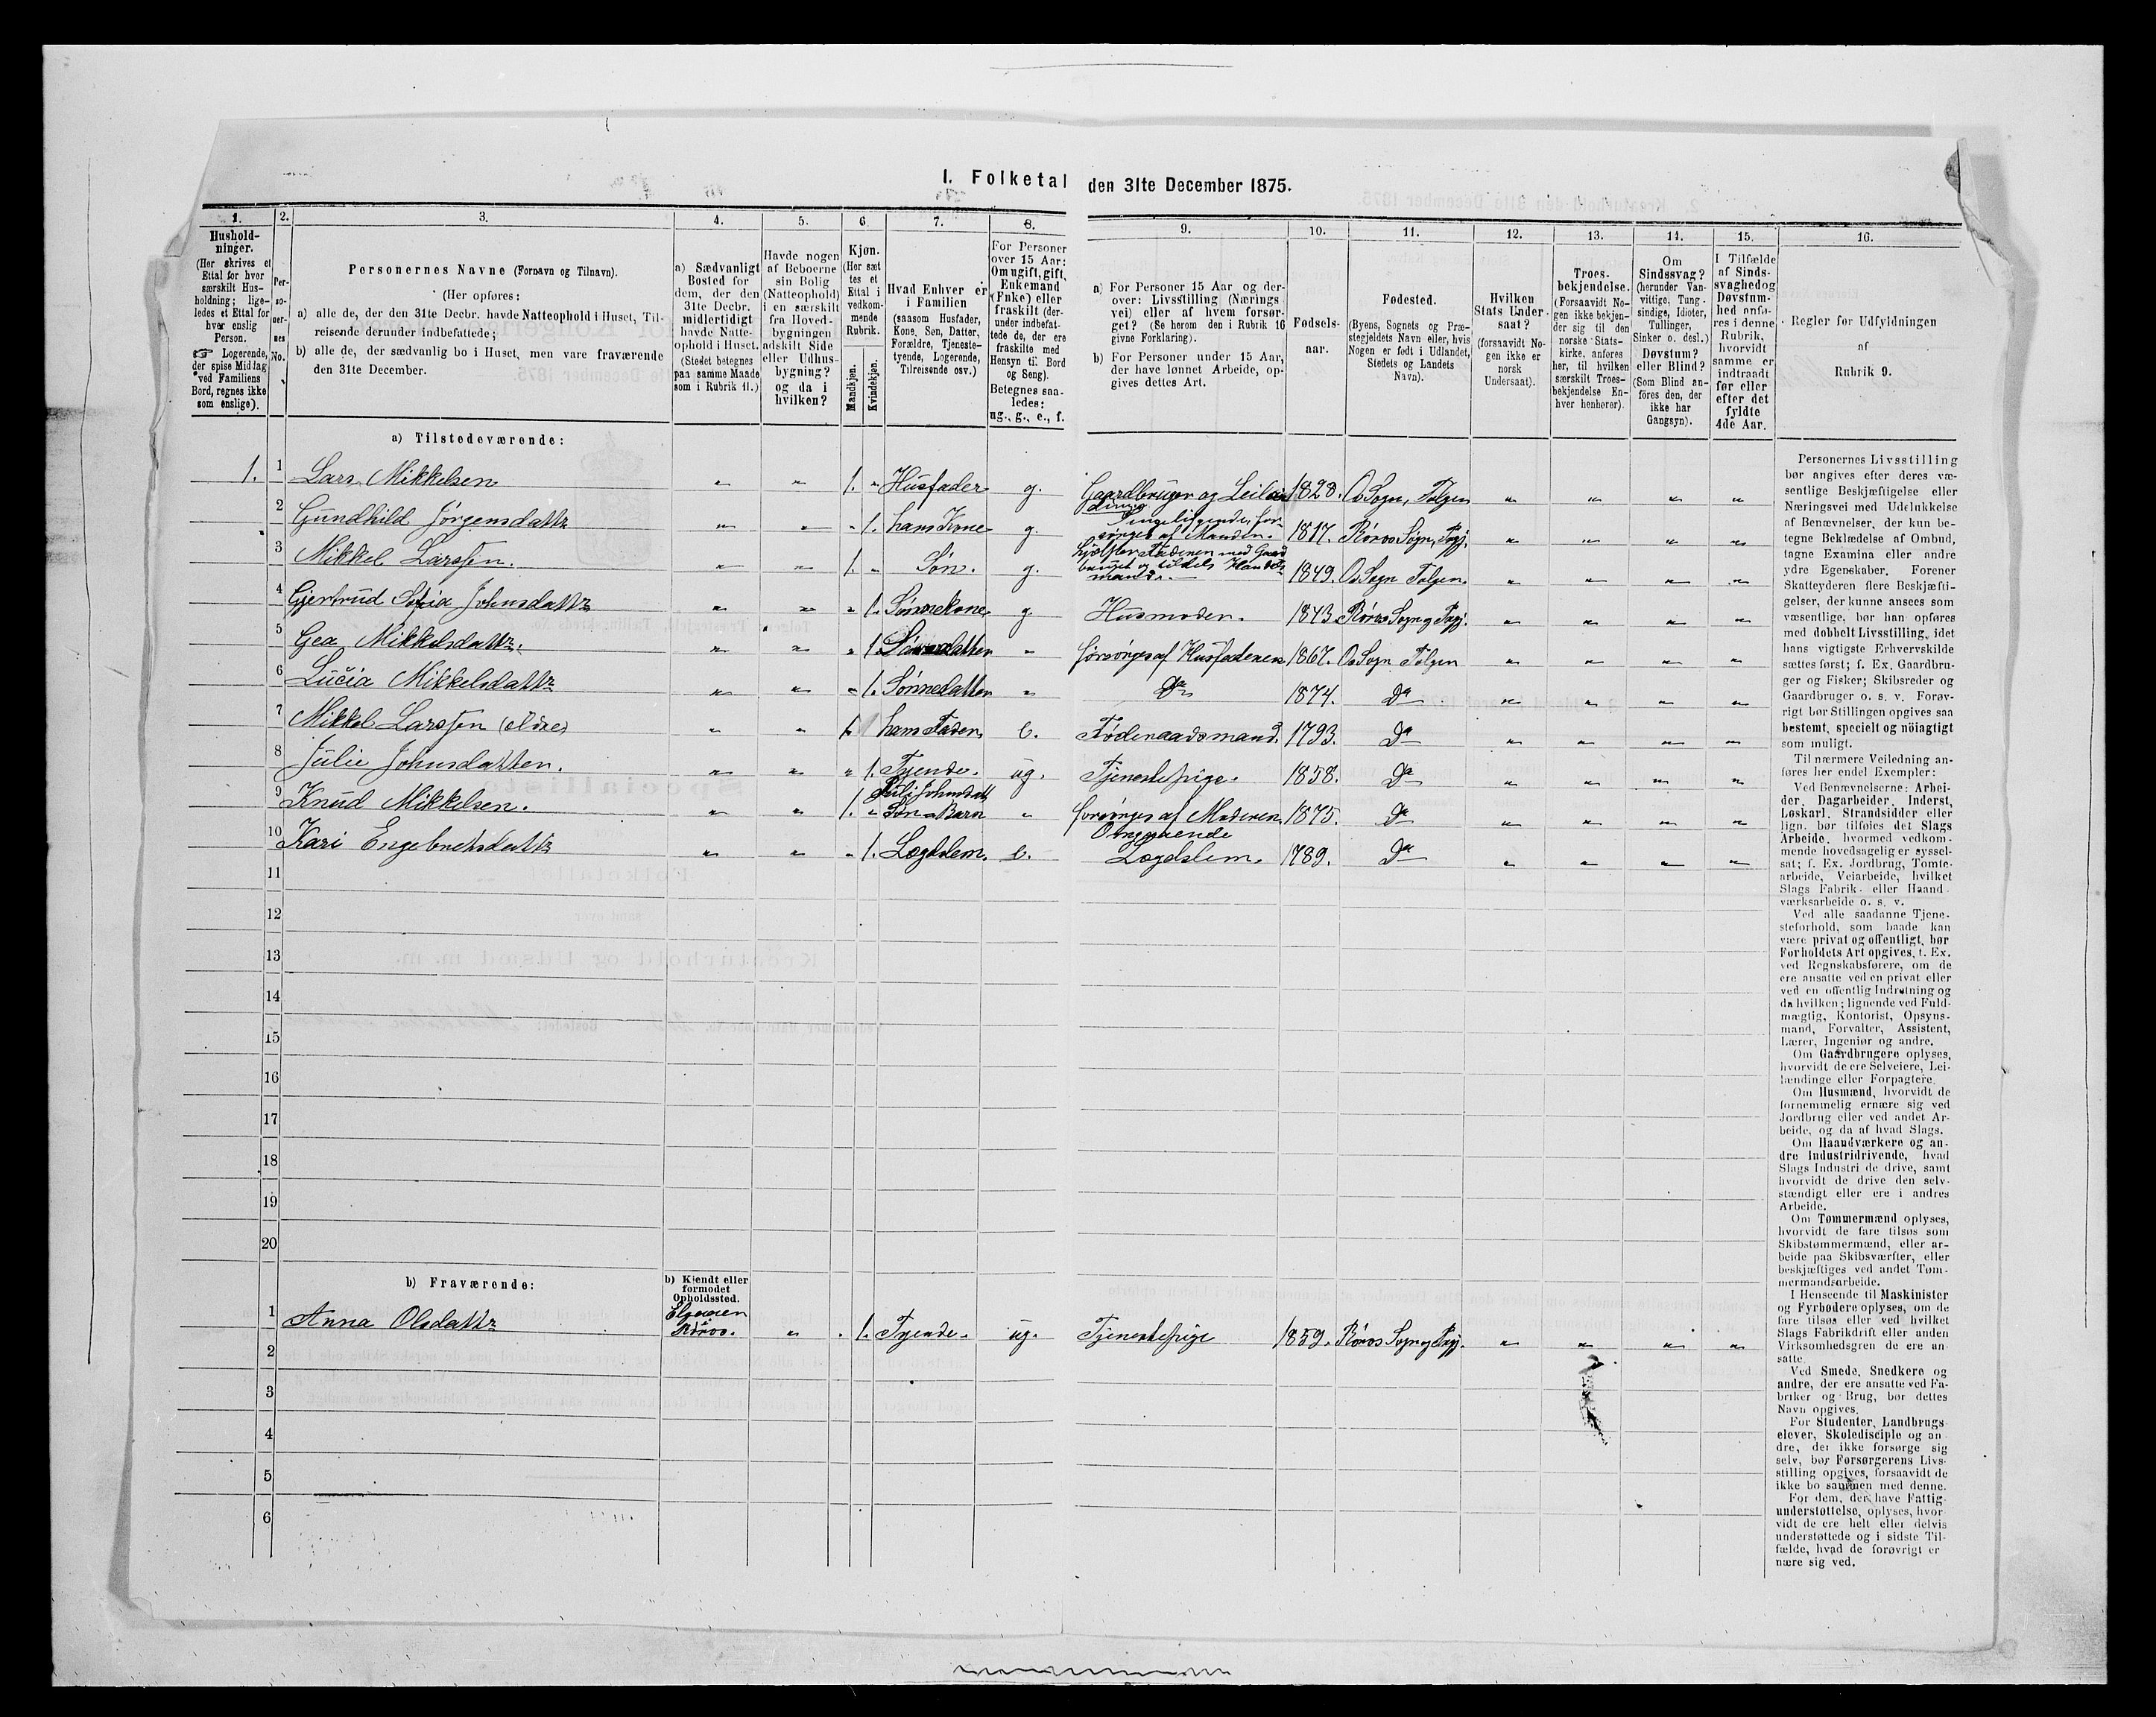 I. Folketal den 31te December 1875.
1. 2. 3. 4. 5. 6. 7. 8. 9. 10. 11. 12. 13. 14. 15. 16.
Hushold-
ninger.
(Her skrives et
Ettal for hver
særskilt Hus-
holdning; lige-
ledes et Ettal for
hver enslig
Person.
☞ Logerende,
der spise Middag
ved Familiens
Bord, regnes ikke
som enslige).
Per-
so-
ner-
nes
No.
Personernes Navne (Fornavn og Tilnavn).
(Her opføres:
a) alle de, der den 31te Decbr. havde Natteophold i Huset, Til-
reisende derunder indbefattede;
b) alle de, der sædvanlig bo i Huset, men vare fraværende
den 31te December.
a) Sædvanligt
Bosted for
dem, der den
31te Decbr.
midlertidigt
havde Natte-
ophold i Huset.
(Stedet betegnes
paa samme Maade
som i Rubrik 11.)
Havde nogen
af Beboerne
sin Bolig
(Natteophold)
i en særskilt
fra Hoved-
bygningen
adskilt Side
eller Udhus-
bygning?
og da i
hvilken?
Kjøn.
(Her sæt
tes et
Ettal i
vedkom-
mende
Rubrik.
Mandkjøn.
Kvindekjøn.
Hvad Enhver er
i Familien
(saasom Husfader,
Kone, Søn, Datter,
Forældre, Tjeneste-
tyende, Logerende,
Tilreisende osv.)
For Personer
over 15 Aar:
Om ugift, gift,
Enkemand
(Enke) eller
fraskilt (der-
under indbefat-
tede de, der ere
fraskilte med
Hensyn til Bord
og Seng).
Betegnes saa-
ledes:
ug., g., e., f.
a) For Personer 15 Aar og der-
over: Livsstilling (Nærings
vei) eller af hvem forsør-
get? (Se herom den i Rubrik 16
givne Forklaring).
b) For Personer under 15 Aar,
der have lønnet Arbeide, op-
gives dettes Art.
Fødsels-
aar.
Fødested.
(Byens, Sognets og Præ-
stegjeldets Navn eller, hvis
Nogen er født i Udlandet,
Stedets og Landets
Navn).
Hvilken
Stats Under-
saat?
(forsaavidt No-
gen ikke er
norsk
Undersaat).
Troes-
bekjendelse.
(Forsaavidt No-
gen ikke bekjen-
der sig til den
norske Stats-
kirke, anføres
her, til hvilken
særskilt Troes-
bekjendelse En-
hver henhører).
Om
Sindssvag?
(herunder Van-
vittige, Tung-
sindige, Idioter,
Tullinger,
Sinker o. desl.)
Døvstum?
eller Blind?
(Som Blind an-
føres den, der
ikke har
Gangsyn).
I Tilfælde
af Sinds-
svaghed og
Døvstum-
hed anfø-
res i denne
Rubrik,
hvorvidt
samme er
indtraadt
før eller
efter det
fyldte
4de Aar.
Regler for Udfyldningen
af
Rubrik 9.
a) Tilstedeværende:
1. 1 Lars Mikkelsen " " 1. " Husfader g. Gaardbruger og Leilæn 1828. Os Sogn, Tolgen " " " "
2 Gundhild Jørgensdattr " " " 1. hans Kone g. 1817. Røros Sogn, Prgj. " " " "
3 Mikkel Larssen. " " 1. " Søn. g. hjælper Faderen med Gaard 1849. Os Sogn Tolgen. " " " "
4 Gjertrud Sofia Johnsdattr " " " 1. Sønnekone g Husmoder. 1843. Røros Sogn og Prgj. " " " "
5 Gea Mikkelsdattr. " " " 1. Sønnedatter " forsørges af Husfaderen 1867. Os Sogn Tolgen " " " "
6 Lucia Mikkelsdattr " " " 1. Sønnedatter " Do 1874. Do " " " "
7 Mikkel Larssen (ældre) " " 1 hans Fader e. Føderaadsmand. 1793. Do " " " "
8 Julie Johnsdatter. " " " 1. Tyende. ug. Tjenestepige. 1858. Do " " " "
9 Knud Mikkelsen. " " 1. " Juli Johnsdatt Søn - Barn " forsørges af Moderen 1875. Do " " " "
10 Kari Engebretsdattr " " " 1. Lægdslem. e. Omgaaende Lægdslem. 1789. Do " " " "
11
12
13
14
15
16
17
18
19
20
b) Fraværende:
b) Kjendt eller
formodet
Opholdssted.
1 Anna Olsdattr Røros. " " 1. Tyende. ug. Tjenestepige 1859. Røros Sogn og Prgj. " " " "
2
3
4
5
6
Personernes Livsstilling
bør angives efter deres væ-
sentlige Beskjæftigelse eller
Næringsvei med Udelukkelse
af Benævnelser, der kun be-
tegne Beklædelse af Ombud,
tagne Examina eller andre
ydre Egenskaber. Forener
Skatteyderen flere Beskjæfti-
gelser, der kunne ansees som
væsentlige, bør han opføres
med dobbelt Livsstilling, idet
hans vigtigste Erhvervskilde
sættes først; f. Ex. Gaardbru-
ger og Fisker; Skibsreder og
Gaardbruger o. s. v. Forøv-
rigt bør Stillingen opgives saa
bestemt, specielt og nöiagtigt
som muligt.
Til nærmere Veiledning an-
føres her endel Exempler:
Ved Benævnelserne: Arbei-
der, Dagarbeider, Inderst,
Løskarl, Strandsidder eller
lign. bør tilføies det Slags
Arbeide, hvormed vedkom-
mende hovedsagelig er syssel-
sat; f. Ex. Jordbrug, Tomte-
arbeide, Veiarbeide, hvilket
Slags Fabrik- eller Haand-
værksarbeide o. s. v.
Ved alle saadanne Tjene-
steforhold, som baade kan
være privat og offentligt, bør
Forholdets Art opgives, f. Ex.
ved Regnskabsførere, om de
ere ansatte ved en privat eller
ved en offentlig Indretning og
da hvilken; lignende ved Fuld-
mægtig, Kontorist, Opsyns-
mand, Forvalter, Assistent,
Lærer, Ingeniør og andre.
Om Gaardbrugere oplyses,
hvorvidt de ere Selveiere, Lei-
lændinge eller Forpagtere.
Om Husmænd, hvorvidt de
fornemmelig ernære sig ved
Jordbrug eller ved andet Ar-
beide, og da af hvad Slags.
Om Haandværkere og an-
dre Industridrivende, hvad
Slags Industri de drive, samt
hvorvidt de drive den selv-
stændigt eller ere i andres
Arbeide.
Om Tømmermænd oplyses,
hvorvidt de fare tilsøs som
Skibstømmermænd, eller ar-
beide paa Skibsværfter, eller
beskjæftiges ved andet Tøm-
mermandsarbeide.
I Henseende til Maskinister
og Fyrbødere oplyses, om de
fare tilsøs eller ved hvilket
Slags Fabrikdrift eller anden
Virksomhedsgren de ere an-
satte.
Ved Smede, Snedkere og
andre, der ere ansatte ved Fa-
briker og Brug, bør dettes
Navn opgives.
For Studenter, Landbrugs-
elever, Skoledisciple og an-
dre, der ikke forsørge sig
selv, bør Forsørgerens Livs-
stilling opgives, forsaavidt de
ikke bo sammen med denne.
For dem, der have Fattig-
understøttelse, oplyses, hvor
vidt de ere helt eller delvis
understøttede og i sidste Til-
fælde, hvad de forøvrigt er
nære sig ved.